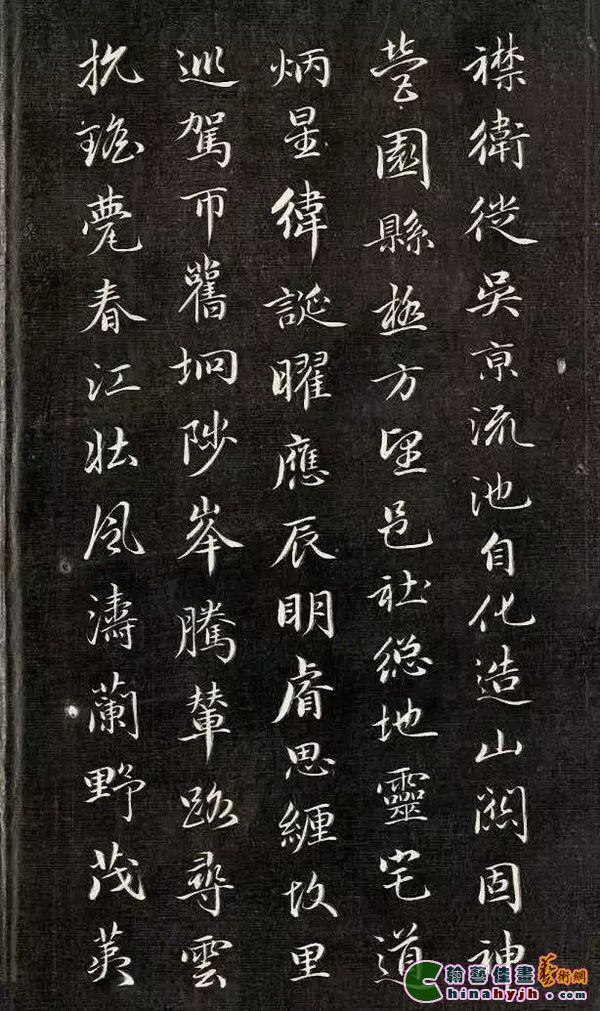 襟衛徙吳京流池自化造山關固神
營園縣極方望邑社總地靈宅道
炳星緯誕曜應辰明睿思纏故里
巡駕帀舊坰陟峯騰輦路尋雲
抗瑤甍春江壯風濤蘭野茂荑
翰藝佳畫藝術網
Chinahyjh.com